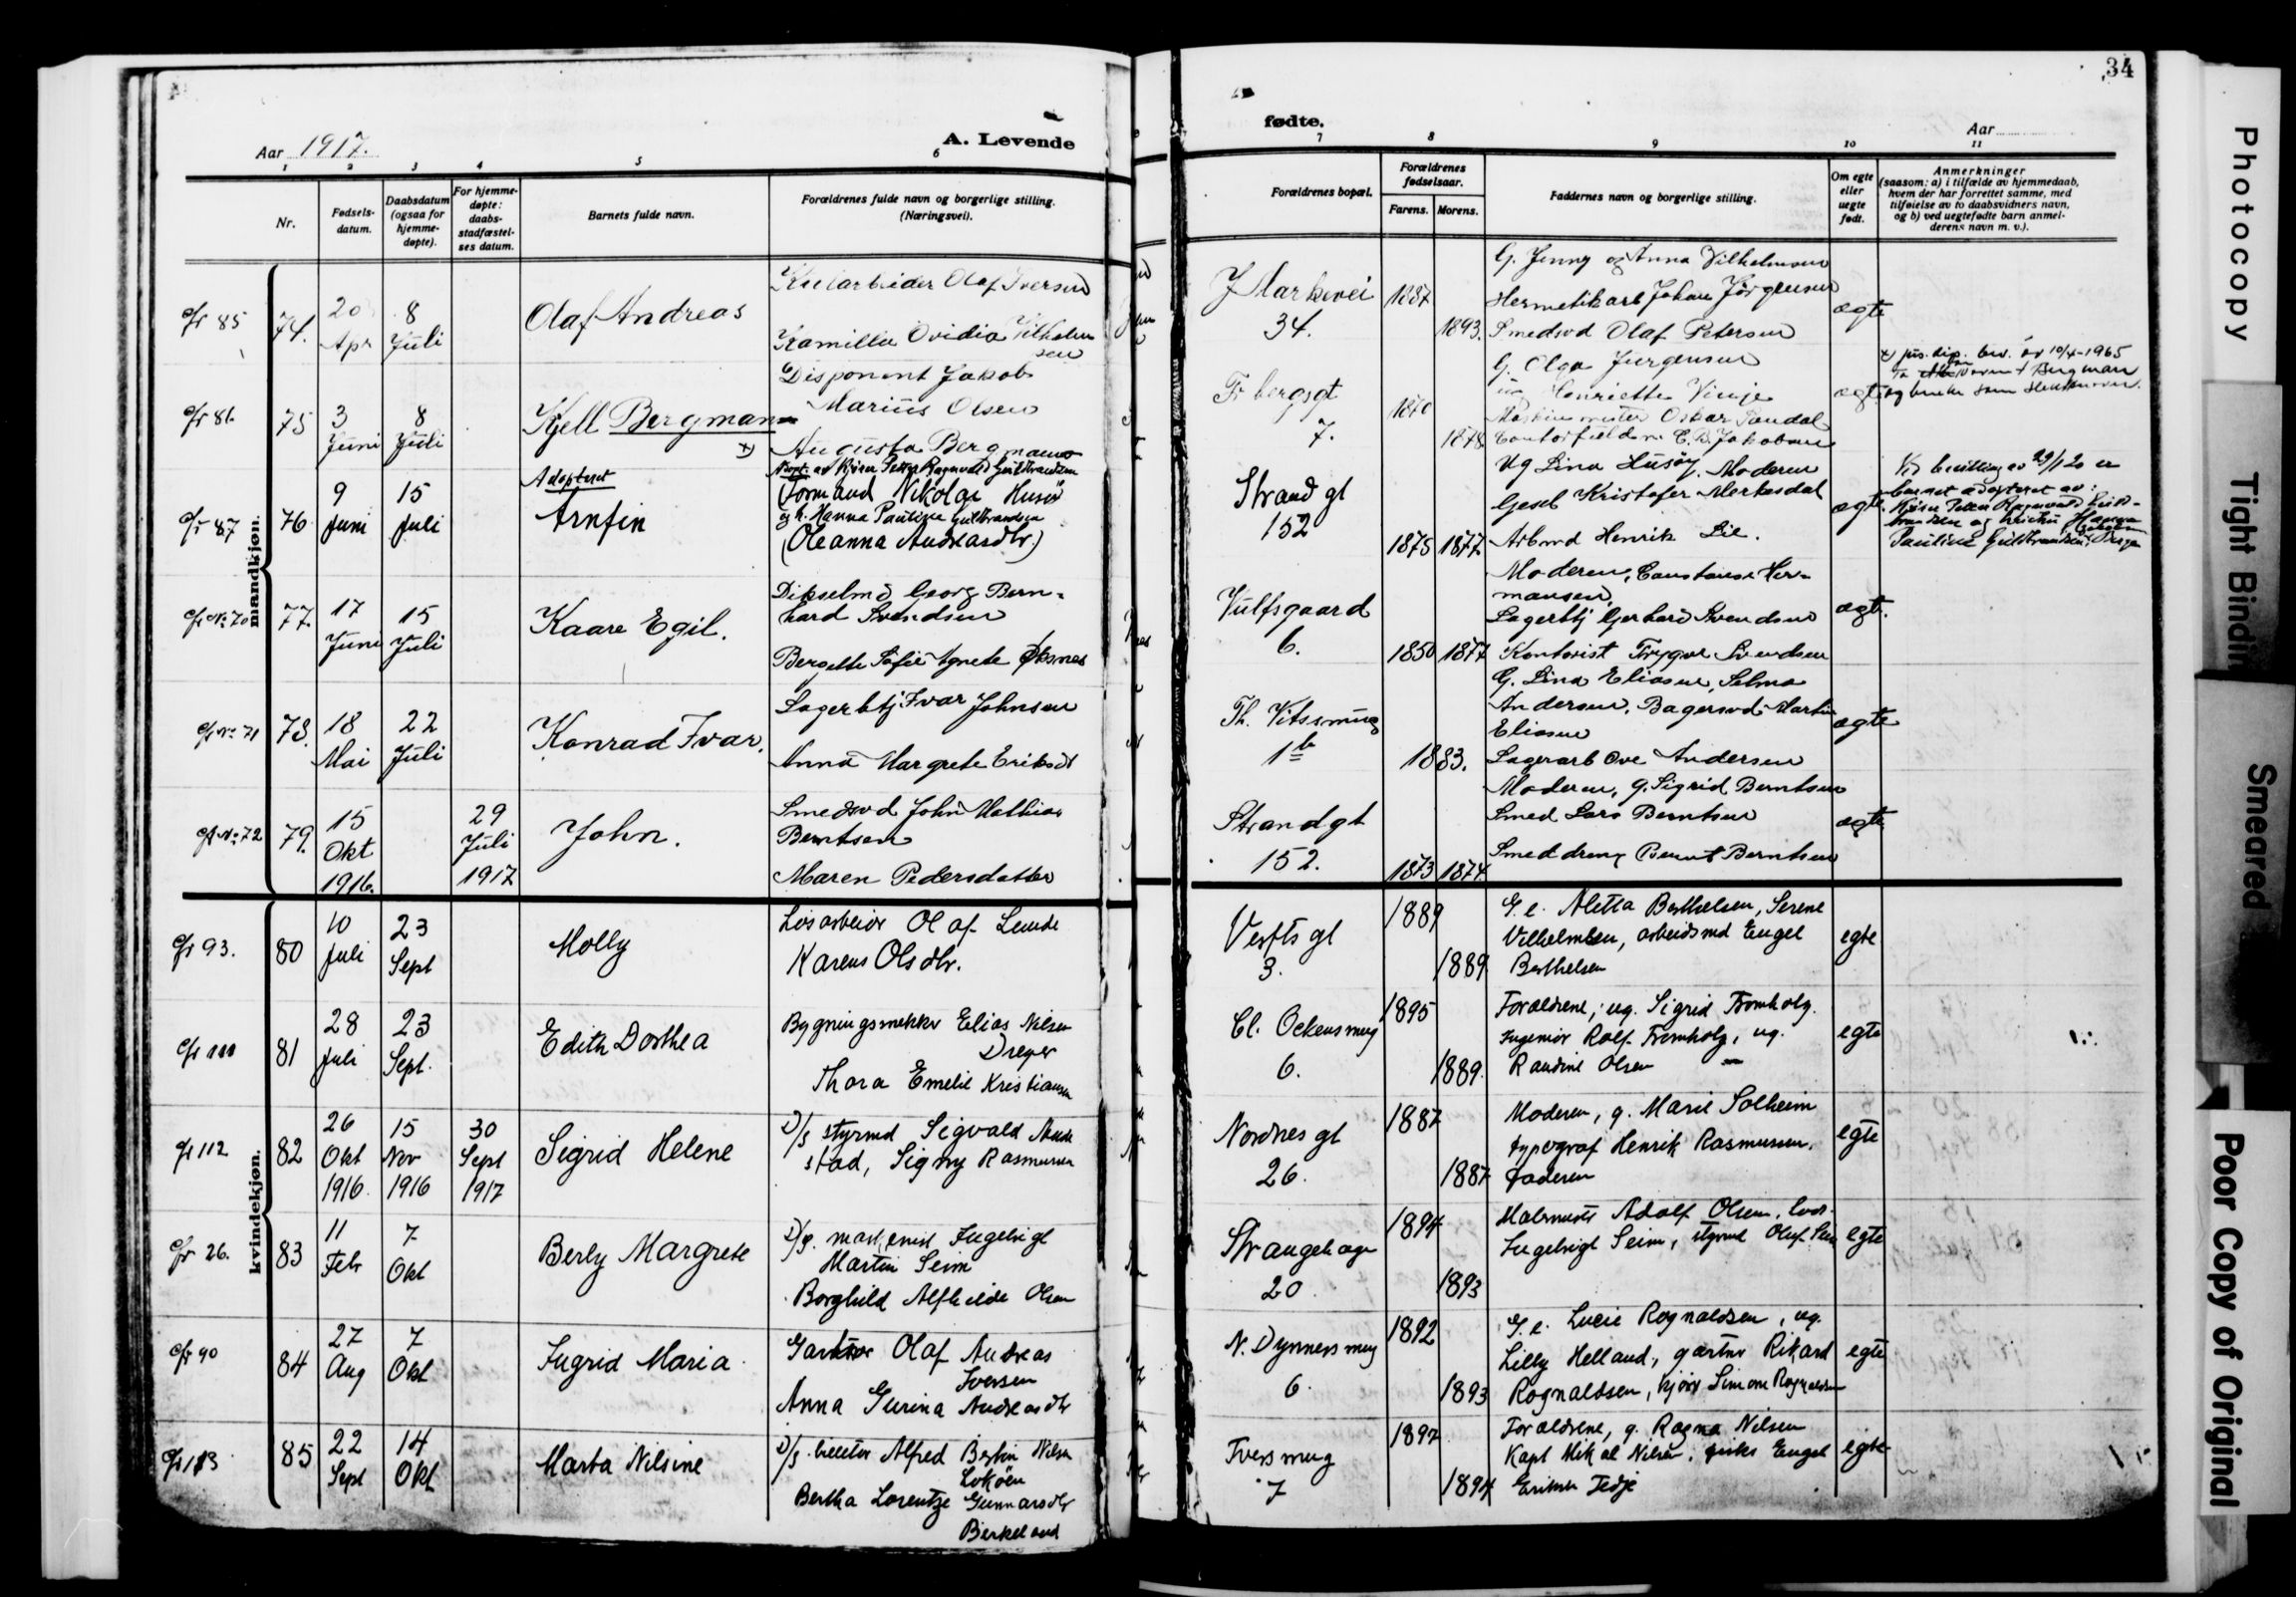 34
Aar 1917.
A. Levende
fødte.
Aar
1 2 3 4 5 6
7 8 9 10 11
Nr.
Fødsels-
datum.
Daabsdatum
(ogsaa for
hjemme-
døpte).
For hjemme-
døpte:
daabs-
stadfæstel-
ses datum.
Barnets fulde navn.
Forældrenes fulde navn og borgerlige stilling.
(Næringsvei).
Forældrenes bopæl.
Forældrenes
fødselsaar.
Farens. Morens.
Faddernes navn og borgerlige stilling.
Om egte
eller
uegte
født.
Anmerkninger
(saasom: a) i tilfælde av hjemmedaab,
hvem der har forrettet samme, med
tilføielse av to daabsvidners navn,
og b) ved uegtefødte barn anmel-
derens navn m. v.).
mandkjøn.
cfr 85
74.
20 Apr
8 Juli
Olaf Andreas
Olaf Iversen
Kamilla Ovidia Vilhelm
sen
34.
1887
1893.
G. Jenny og Anna Vilhelmsen
Hermetikarb Johan Jörgensen
Smedsvd Olaf Petersen
ægte
cfr 86
75
3 Juni
8 Juli
Kjell Bergmann
x)
Disponent Jakob
Marius Olsen
Augusta Bergmann
7.
1870
1878
G. Olga Jurgensen
ug Henriette Vinje
Oskar Sandal
C. B. Jakobsen
ægte
x) jus. dep. bev. av 10/4-1965
cfr 87
76
9 Juni
15 Juli
Adopteret
Arnfin
Adopt. av Kjører Petter Ragnvald Guldbrandsen
(Formand Nikolai Husø
og h. Hanna Pauline Guldbrandsen
(Oleanna Andreasdtr.)
Strandgt
152
1875 1877
Ug Lina Husøy, Moderen
Gesel Kristofer Merkesdal
Arbmd Henrik Lie.
ægte
Ved bevilling av 29/1 20 er
barnet adopteret av:
Kjører Petter Ragnvald Guld-
brandsen og hustru Hanna
Pauline Guldbrandsen,
cfr No 70
77.
17 Juni
15 Juli
Kaare Egil.
Dikselmd Georg Bern-
hard Svendsen
Bergette Sofie Agnete Øksnes
Vulfsgaard
6.
1850 1877
Moderen, Constance Her-
mansen,
Lagerbtj Gerhard Svendsen
Kontorist Trygve Svendsen
ægt.
cfr No 71
78.
18 Mai
22 Juli
Konrad Ivar.
Lagerbtj Ivar Johnsen
Anna Margrete Eriksdt
Th. Vitssmug
1b
1883.
G. Lina Eliasen, Selma
Andersen, Bagersvd Martin
Eliasen
Lagerarb Ove Andersen
ægte
cfr No 72
79.
15 Okt 1916.
29 Juli 1917
John.
Smedsvd John Mathias
Berntsen
Maren Pedersdatter
Strandgt
152.
1873 1874
Moderen, g. Sigrid Berntsen
Smed Lars Berntsen
Smeddreng Bernt Berntsen
ægte
kvindekjøn.
cfr 93.
80
10 Juli
23 Sept
Molly
Løsarbeider Olaf Lunde
Karens Olsdtr.
Verftsgt
3.
1889
1889
G. e. Aletta Berthelsen, Serene
Vilhelmsen, arbeidsmd Engel
Berthelsen
egte
cfr 111
81
28 Juli
23 Sept.
Edith Dorthea
Bygningssnekker Elias Nilsen
Dreyer
Thora Emelie Kristiansen
Cl. Ockensmug
6.
1895
1889
Forældrene, ug. Sigrid Tromholz.
Ingeniør Rolf Tromholz, ug.
Randine Olsen
egte
cfr 112
82
26 Okt 1916
15 Nov 1916
30 Sept 1917
Sigrid Helene
D/s styrmd Sigvald
stad, Signy Rasmussen
Nordnesgt
26.
1887
1887
Moderen, g. Marie Solheim
typograf Henrik Rasmussen.
Faderen
egte
cfr 26.
83
11 Febr
7 Okt
Berly Margrete
Ingebrigt
Martin Seim
Borghild Alfhilde Olsen
Strangehage
20
1894
1893
Malermester Adolf Olsen,
Ingebrigt Seim, styrmd Oluf Seim
egte
cfr 90
84
27 Aug
7 Okt
Ingrid Maria
Gartner Olaf Andreas
Iversen
Anna Gurina Andreasdtr
N. Dynnersmug
6.
1892
1893
G. e. Lucie Rognaldsen, ug.
Lilly Helland, gartner Rikard
Rognaldsen, kjører Simone Rognaldsen
egte
cfr 113
85
22 Sept
14 Okt
Marta Nilsine
Alfred Bertin Nilsen
Lokøen
Bertha Lorentze Gunnarsdtr
Birkeland
Tversmug
7
1897
1894
Forældrene, g. Ragna Nilsen
Kapt Mikal Nilsen, Engel
Eriksen Tedje
egte
Photocopy
Tight Bindin
Smeared
Poor Copy of Original